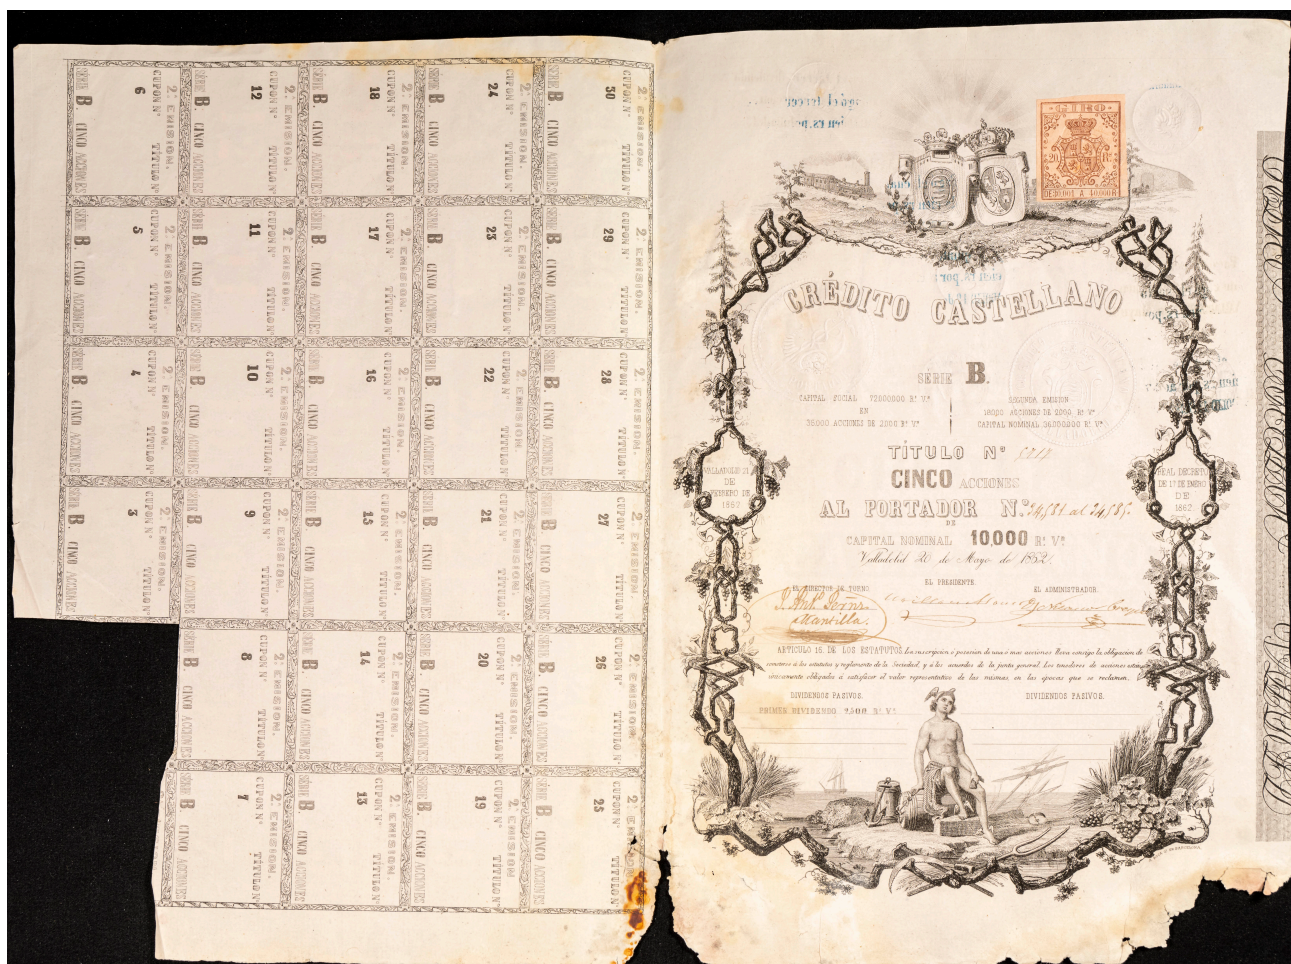 GIRO
20 Rs.
CRÉDITO CASTELLANO
SERIE B.
CAPITAL SOCIAL 72000000 Rs. Vn.
EN
36000 ACCIONES DE 2000 Rs. Vn.
SEGUNDA EMISION
18000 ACCIONES DE 2000 Rs. Vn.
CAPITAL NOMINAL 36000000 Rs. Vn.
VALLADOLID 21
DE
FEBRERO DE
1862
REAL DECRETO
DE 17 DE ENERO
DE
1862
TÍTULO No
CINCO ACCIONES
AL PORTADOR No. 24,581 al 24,585.
DE
CAPITAL NOMINAL 10,000 Rs. Vn.
Valladolid 20 de Mayo de 1862.
EL DIRECTOR DE TURNO
EL PRESIDENTE.
EL ADMINISTRADOR.
Mantilla.
ARTICULO 16. DE LOS ESTATUTOS. La suscripcion ó posesion de una ó mas acciones lleva consigo la obligacion de
someterse á los estatutos y reglamento de la Sociedad, y á los acuerdos de la junta general. Los tenedores de acciones estan
únicamente obligados á satisfacer el valor representativo de las mismas, en las épocas que se reclamen.
DIVIDENDOS PASIVOS.
DIVIDENDOS PASIVOS.
PRIMER DIVIDENDO
2.a EMISION.
CUPON No 30 TÍTULO No
SÉRIE B. CINCO ACCIONES
2.a EMISION.
CUPON No 29 TÍTULO No
SÉRIE B. CINCO ACCIONES
2.a EMISION.
CUPON No 28 TÍTULO No
SÉRIE B. CINCO ACCIONES
2.a EMISION.
CUPON No 27 TÍTULO No
SÉRIE B. CINCO ACCIONES
2.a EMISION.
CUPON No 26 TÍTULO No
SÉRIE B. CINCO ACCIONES
2.a EMISION.
CUPON No 25 TÍTULO No
SÉRIE B. CINCO ACCIONES
2.a EMISION.
CUPON No 24 TÍTULO No
SÉRIE B. CINCO ACCIONES
2.a EMISION.
CUPON No 23 TÍTULO No
SÉRIE B. CINCO ACCIONES
2.a EMISION.
CUPON No 22 TÍTULO No
SÉRIE B. CINCO ACCIONES
2.a EMISION.
CUPON No 21 TÍTULO No
SÉRIE B. CINCO ACCIONES
2.a EMISION.
CUPON No 20 TÍTULO No
SÉRIE B. CINCO ACCIONES
2.a EMISION.
CUPON No 19 TÍTULO No
SÉRIE B. CINCO ACCIONES
2.a EMISION.
CUPON No 18 TÍTULO No
SÉRIE B. CINCO ACCIONES
2.a EMISION.
CUPON No 17 TÍTULO No
SÉRIE B. CINCO ACCIONES
2.a EMISION.
CUPON No 16 TÍTULO No
SÉRIE B. CINCO ACCIONES
2.a EMISION.
CUPON No 15 TÍTULO No
SÉRIE B. CINCO ACCIONES
2.a EMISION.
CUPON No 14 TÍTULO No
SÉRIE B. CINCO ACCIONES
2.a EMISION.
CUPON No 13 TÍTULO No
SÉRIE B. CINCO ACCIONES
2.a EMISION.
CUPON No 12 TÍTULO No
SÉRIE B. CINCO ACCIONES
2.a EMISION.
CUPON No 11 TÍTULO No
SÉRIE B. CINCO ACCIONES
2.a EMISION.
CUPON No 10 TÍTULO No
SÉRIE B. CINCO ACCIONES
2.a EMISION.
CUPON No 9 TÍTULO No
SÉRIE B. CINCO ACCIONES
2.a EMISION.
CUPON No 8 TÍTULO No
SÉRIE B. CINCO ACCIONES
2.a EMISION.
CUPON No 7 TÍTULO No
SÉRIE B. CINCO ACCIONES
2.a EMISION.
CUPON No 6 TÍTULO No
SÉRIE B. CINCO ACCIONES
2.a EMISION.
CUPON No 5 TÍTULO No
SÉRIE B. CINCO ACCIONES
2.a EMISION.
CUPON No 4 TÍTULO No
SÉRIE B. CINCO ACCIONES
2.a EMISION.
CUPON No 3 TÍTULO No
SÉRIE B. CINCO ACCIONES